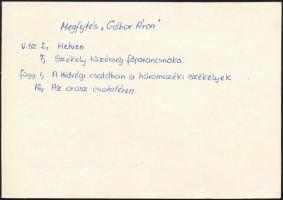 Megfejtés „Gábor Áron"
V.sz. 2, Hetven
7, Székely tüzérség főparancsnoka.
függ. 1, A Hidvégi csatában a háromszéki székelyek
16, Az orosz csatatéren